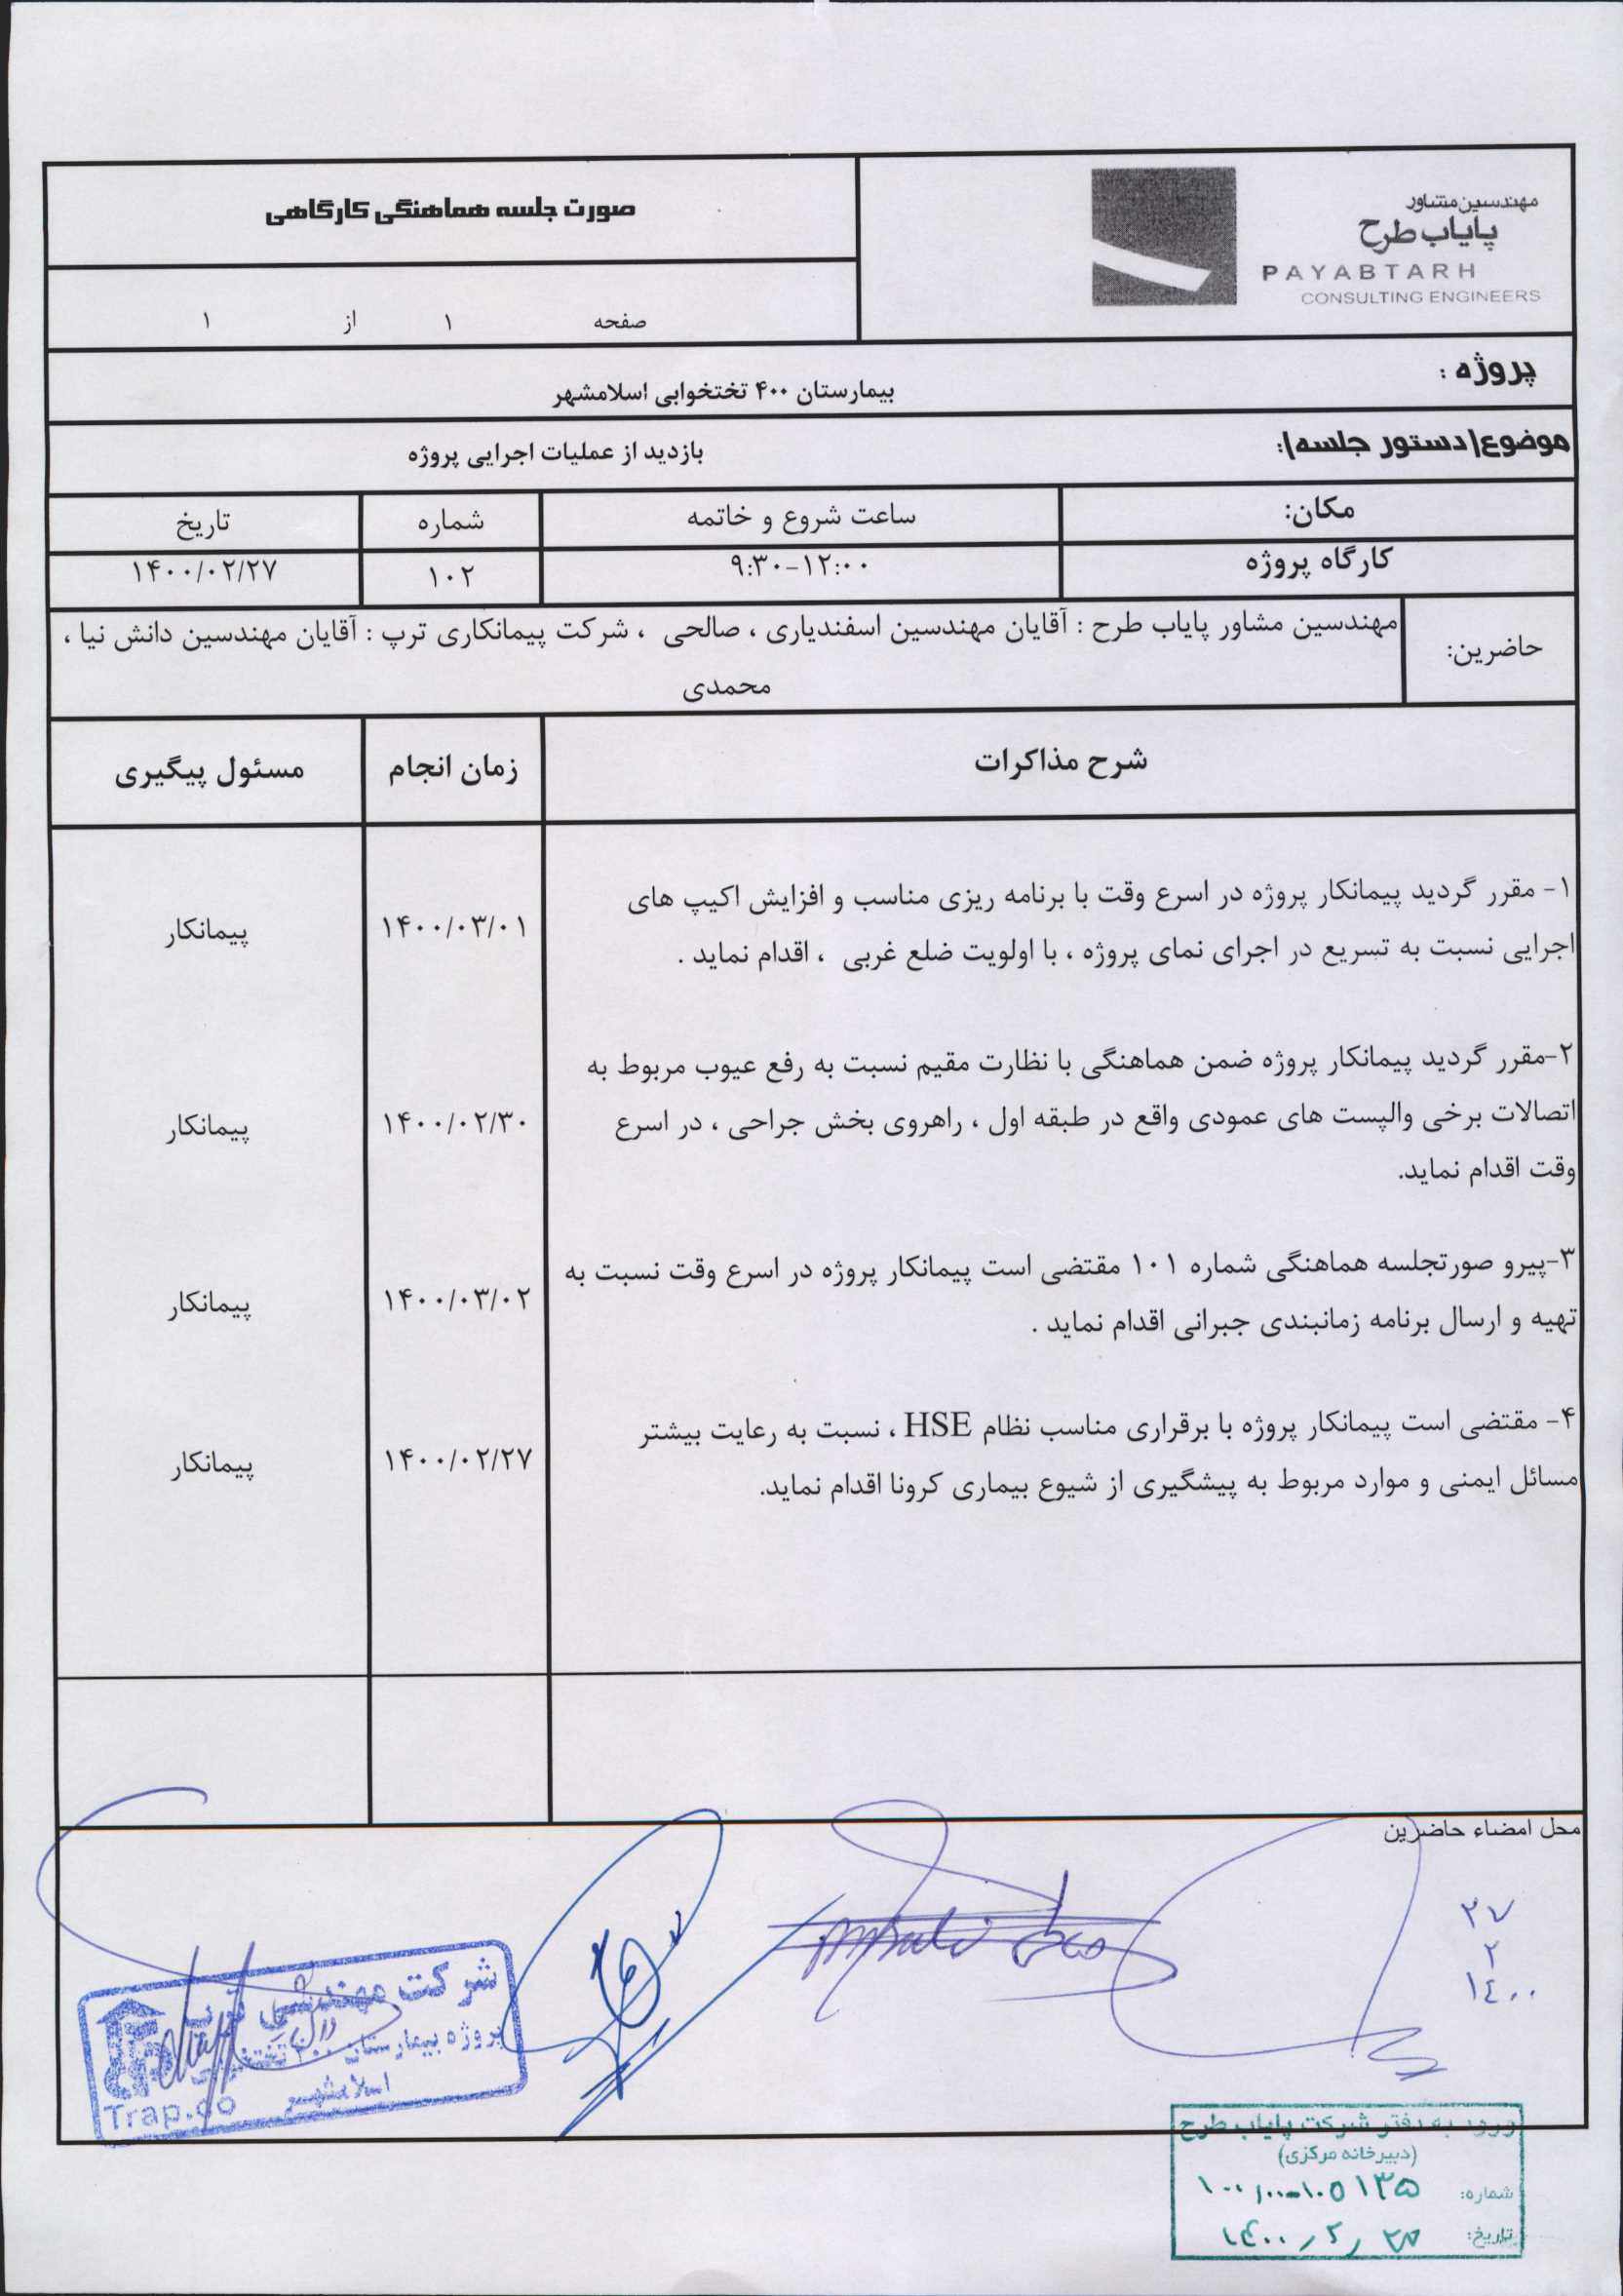 مهندسین مشاور
پایاب طرح
PAYABTARH
CONSULTING ENGINEERS
صورت جلسه هماهنگی کارگاهی
صفحه ۱ از ۱
پروژه :
بیمارستان ۴۰۰ تختخوابی اسلامشهر
موضوع(دستور جلسه):
بازدید از عملیات اجرایی پروژه
مکان: ساعت شروع و خاتمه شماره تاریخ
کارگاه پروژه ۹:۳۰-۱۲:۰۰ ۱۰۲ ۱۴۰۰/۰۲/۲۷
حاضرین:
مهندسین مشاور پایاب طرح : آقایان مهندسین اسفندیاری ، صالحی ، شرکت پیمانکاری ترپ : آقایان مهندسین دانش نیا ،
محمدی
شرح مذاکرات زمان انجام مسئول پیگیری
۱- مقرر گردید پیمانکار پروژه در اسرع وقت با برنامه ریزی مناسب و افزایش اکیپ های
اجرایی نسبت به تسریع در اجرای نمای پروژه ، با اولویت ضلع غربی ، اقدام نماید .
۱۴۰۰/۰۳/۰۱ پیمانکار
۲-مقرر گردید پیمانکار پروژه ضمن هماهنگی با نظارت مقیم نسبت به رفع عیوب مربوط به
اتصالات برخی والپست های عمودی واقع در طبقه اول ، راهروی بخش جراحی ، در اسرع
وقت اقدام نماید.
۱۴۰۰/۰۲/۳۰ پیمانکار
۳-پیرو صورتجلسه هماهنگی شماره ۱۰۱ مقتضی است پیمانکار پروژه در اسرع وقت نسبت به
تهیه و ارسال برنامه زمانبندی جبرانی اقدام نماید .
۱۴۰۰/۰۳/۰۲ پیمانکار
۴- مقتضی است پیمانکار پروژه با برقراری مناسب نظام HSE ، نسبت به رعایت بیشتر
مسائل ایمنی و موارد مربوط به پیشگیری از شیوع بیماری کرونا اقدام نماید.
۱۴۰۰/۰۲/۲۷ پیمانکار
محل امضاء حاضرین
۲۷
۲
۱۴۰۰
شرکت مهندسی ترپ
پروژه بیمارستان ۴۰۰ تختخوابی
اسلامشهر
Trap.co
ورود به دفتر شرکت پایاب طرح
(دبیرخانه مرکزی)
شماره:
تاریخ: ۱۴۰۰/۲/۲۷